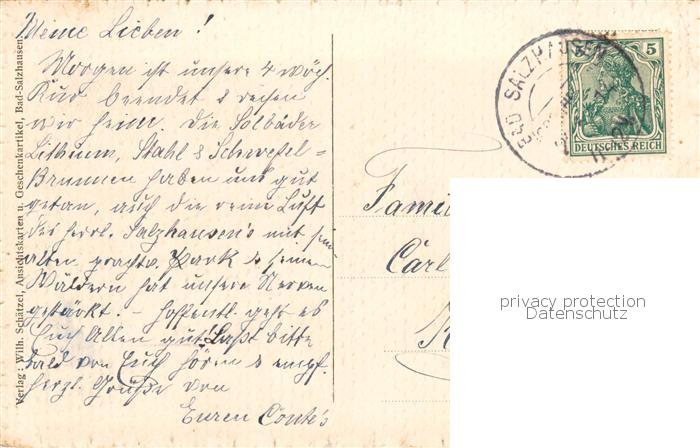 Meine Lieben!
Morgen ist unsere 4 wöch.
Kur beendet & reisen
wir heim. Die Solbäder
Lithium, Stahl & Schwefel=
Brunnen haben uns gut
getan, auch die reine Luft
des herrl. Salzhausen's mit sein
alten prachtv. Park & seinen
Wäldern hat unsere Nerven
gestärkt! – Hoffentl. geht es
Euch Allen gut! Lasst bitte
bald von Euch hören & empf.
herzl. Grüße von
Euren Conte's
Verlag: Wilh. Schätzel, Ansichtskarten u. Geschenkartikel, Bad-Salzhausen
BAD SALZHAUSEN
5
DEUTSCHES REICH
Famil
Carl
privacy protection
Datenschutz